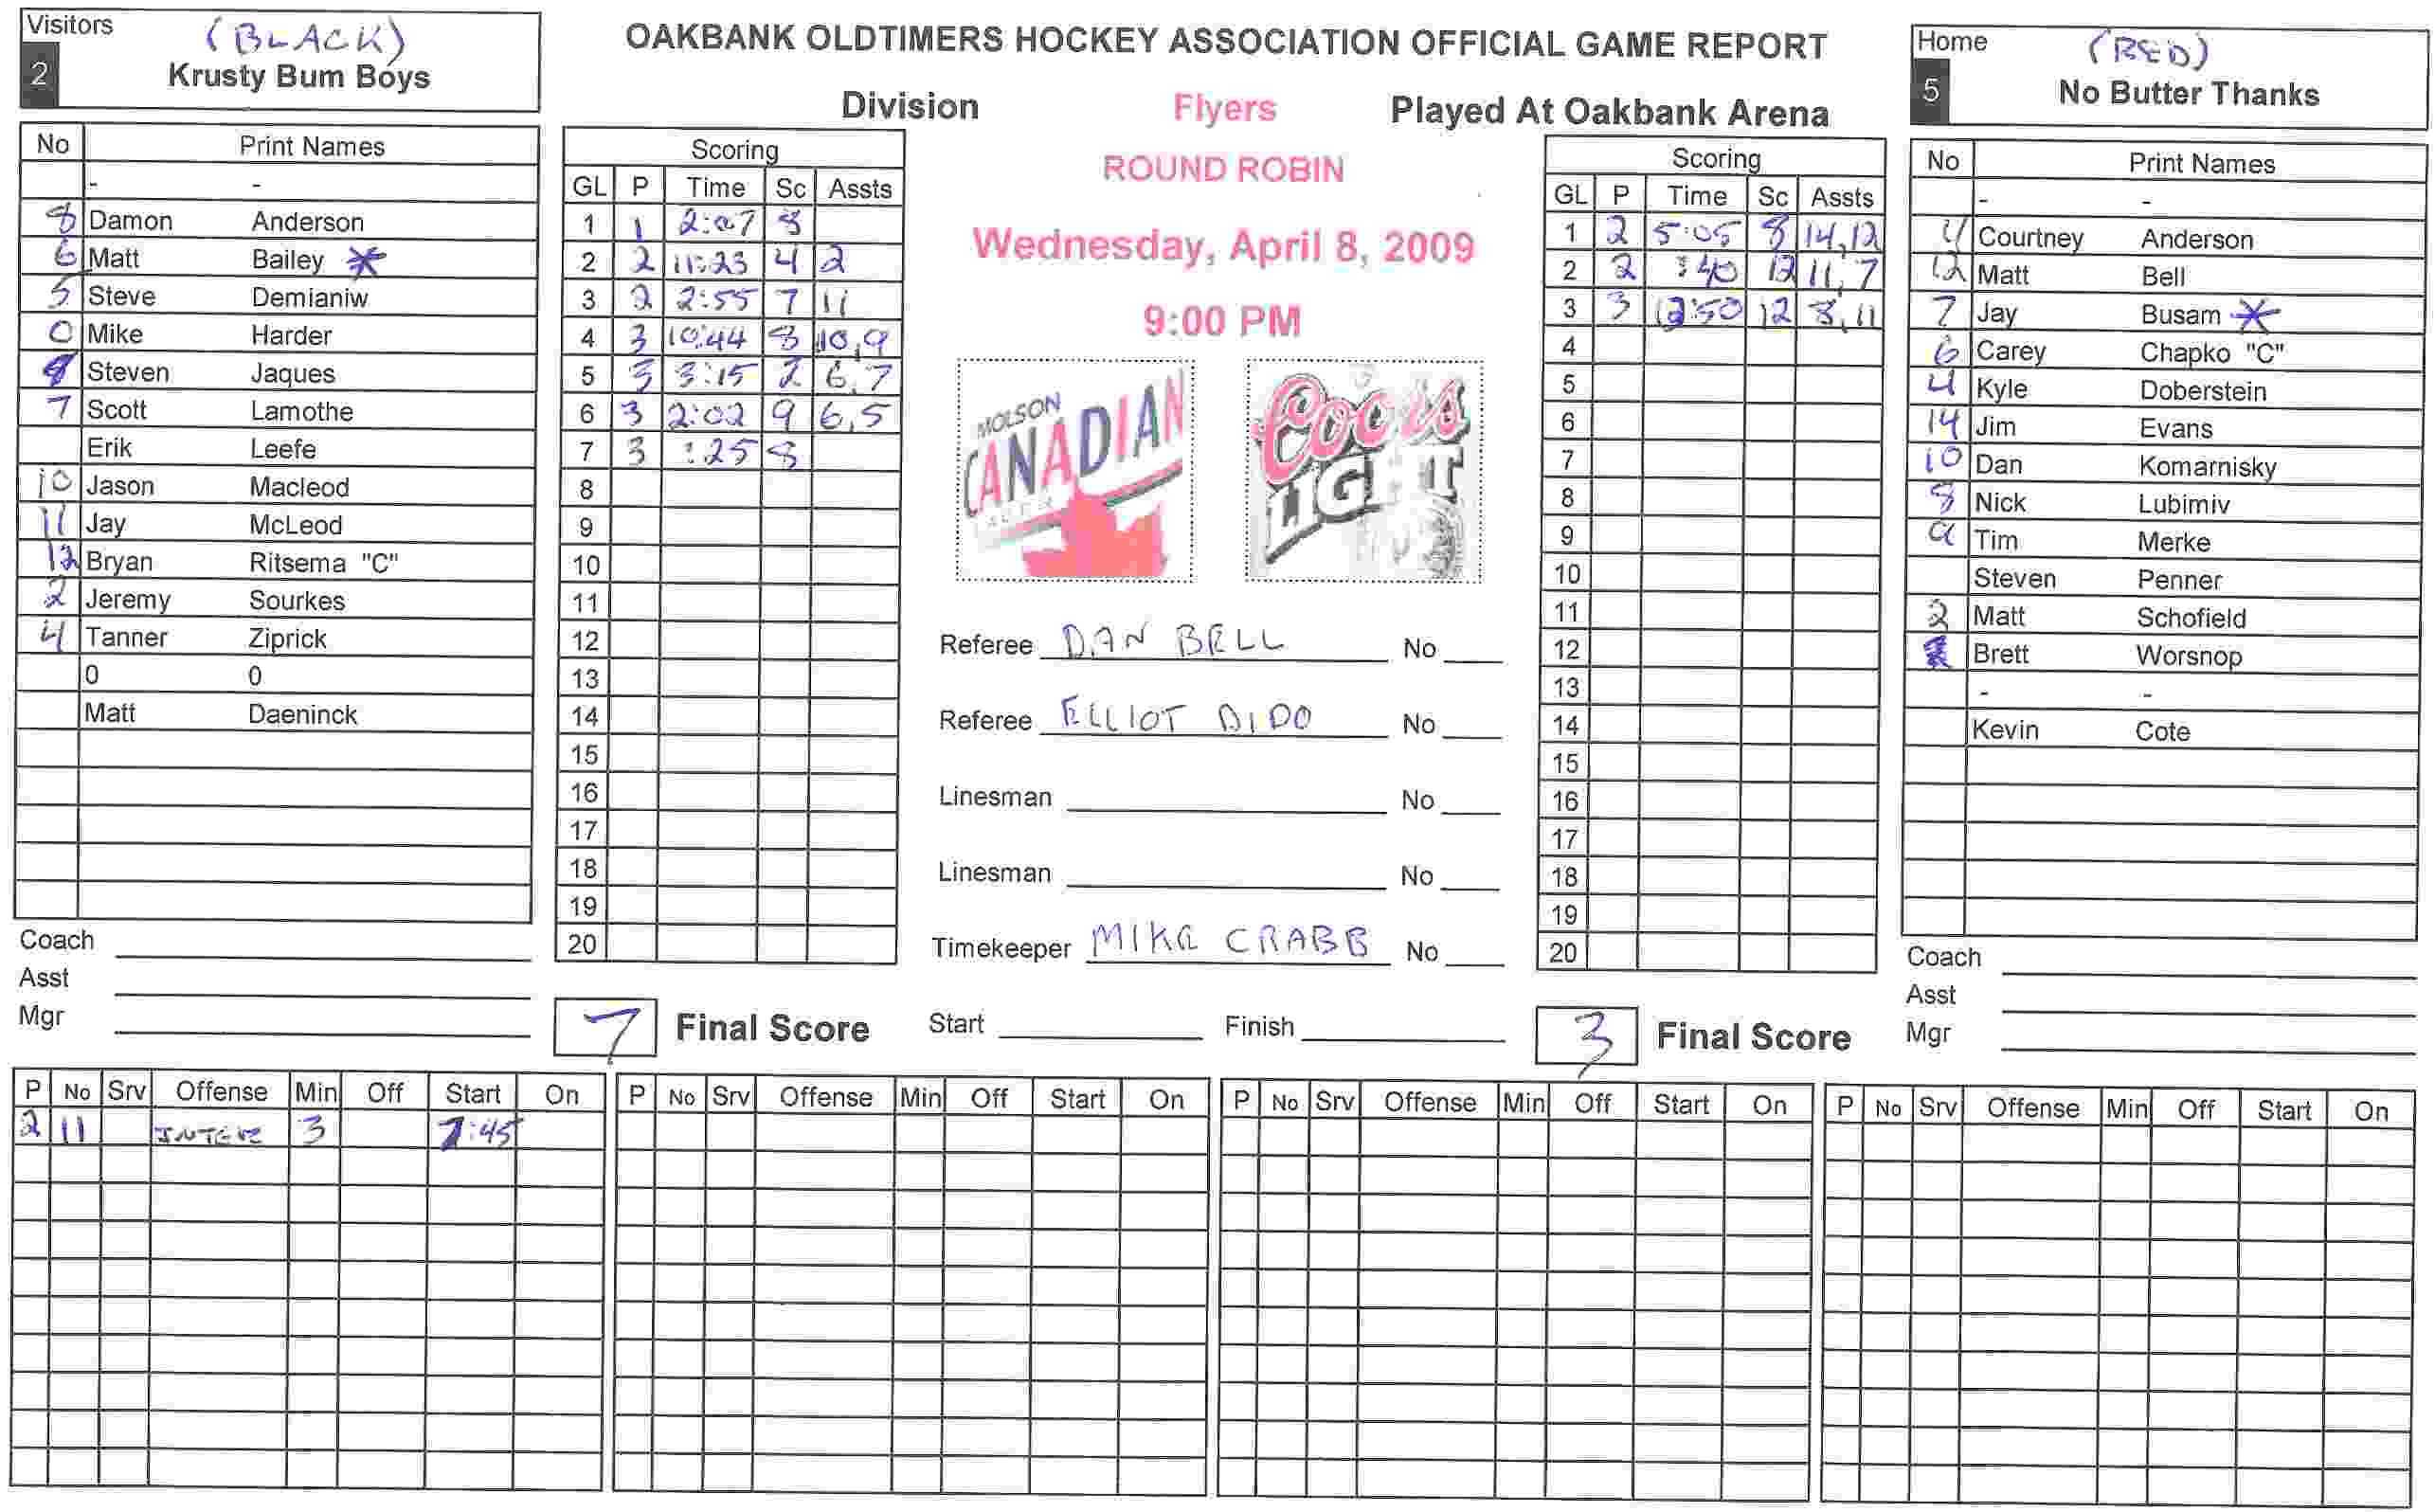 Visitors (BLACK)
2 Krusty Bum Boys
OAKBANK OLDTIMERS HOCKEY ASSOCIATION OFFICIAL GAME REPORT
Division Flyers Played At Oakbank Arena
ROUND ROBIN
Wednesday, April 8, 2009
9:00 PM
Home (RED)
5 No Butter Thanks
No Print Names
- -
8 Damon Anderson
6 Matt Bailey *
5 Steve Demianiw
0 Mike Harder
Steven Jaques
7 Scott Lamothe
Erik Leefe
10 Jason Macleod
11 Jay McLeod
12 Bryan Ritsema "C"
2 Jeremy Sourkes
4 Tanner Ziprick
0 0
Matt Daeninck
Coach
Asst
Mgr
Scoring
GL P Time Sc Assts
1 1 2:07 8
2 2 11:23 4 2
3 2 2:55 7 11
4 3 10:44 8 10,9
5 3 3:15 2 6,7
6 3 2:02 9 6,5
7 3 :25 8
8
9
10
11
12
13
14
15
16
17
18
19
20
7 Final Score
MOLSON
CANADIAN
LAGER
Coors
LIGHT
Referee DAN BELL No
Referee ELLIOT DIDO No
Linesman No
Linesman No
Timekeeper MIKE CRABB No
Start Finish
Scoring
GL P Time Sc Assts
1 2 5:05 8 14,12
2 2 :40 12 11,7
3 3 12:50 12 8,11
4
5
6
7
8
9
10
11
12
13
14
15
16
17
18
19
20
3 Final Score
No Print Names
- -
4 Courtney Anderson
12 Matt Bell
7 Jay Busam *
6 Carey Chapko "C"
4 Kyle Doberstein
14 Jim Evans
10 Dan Komarnisky
8 Nick Lubimiv
9 Tim Merke
Steven Penner
2 Matt Schofield
Brett Worsnop
- -
Kevin Cote
Coach
Asst
Mgr
P No Srv Offense Min Off Start On P No Srv Offense Min Off Start On P No Srv Offense Min Off Start On P No Srv Offense Min Off Start On
2 11 INTER 3 :45